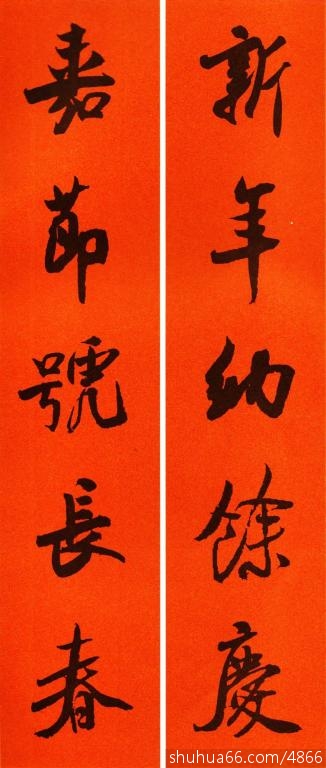 新年納餘慶
嘉節號長春
shuhua66.com/4866